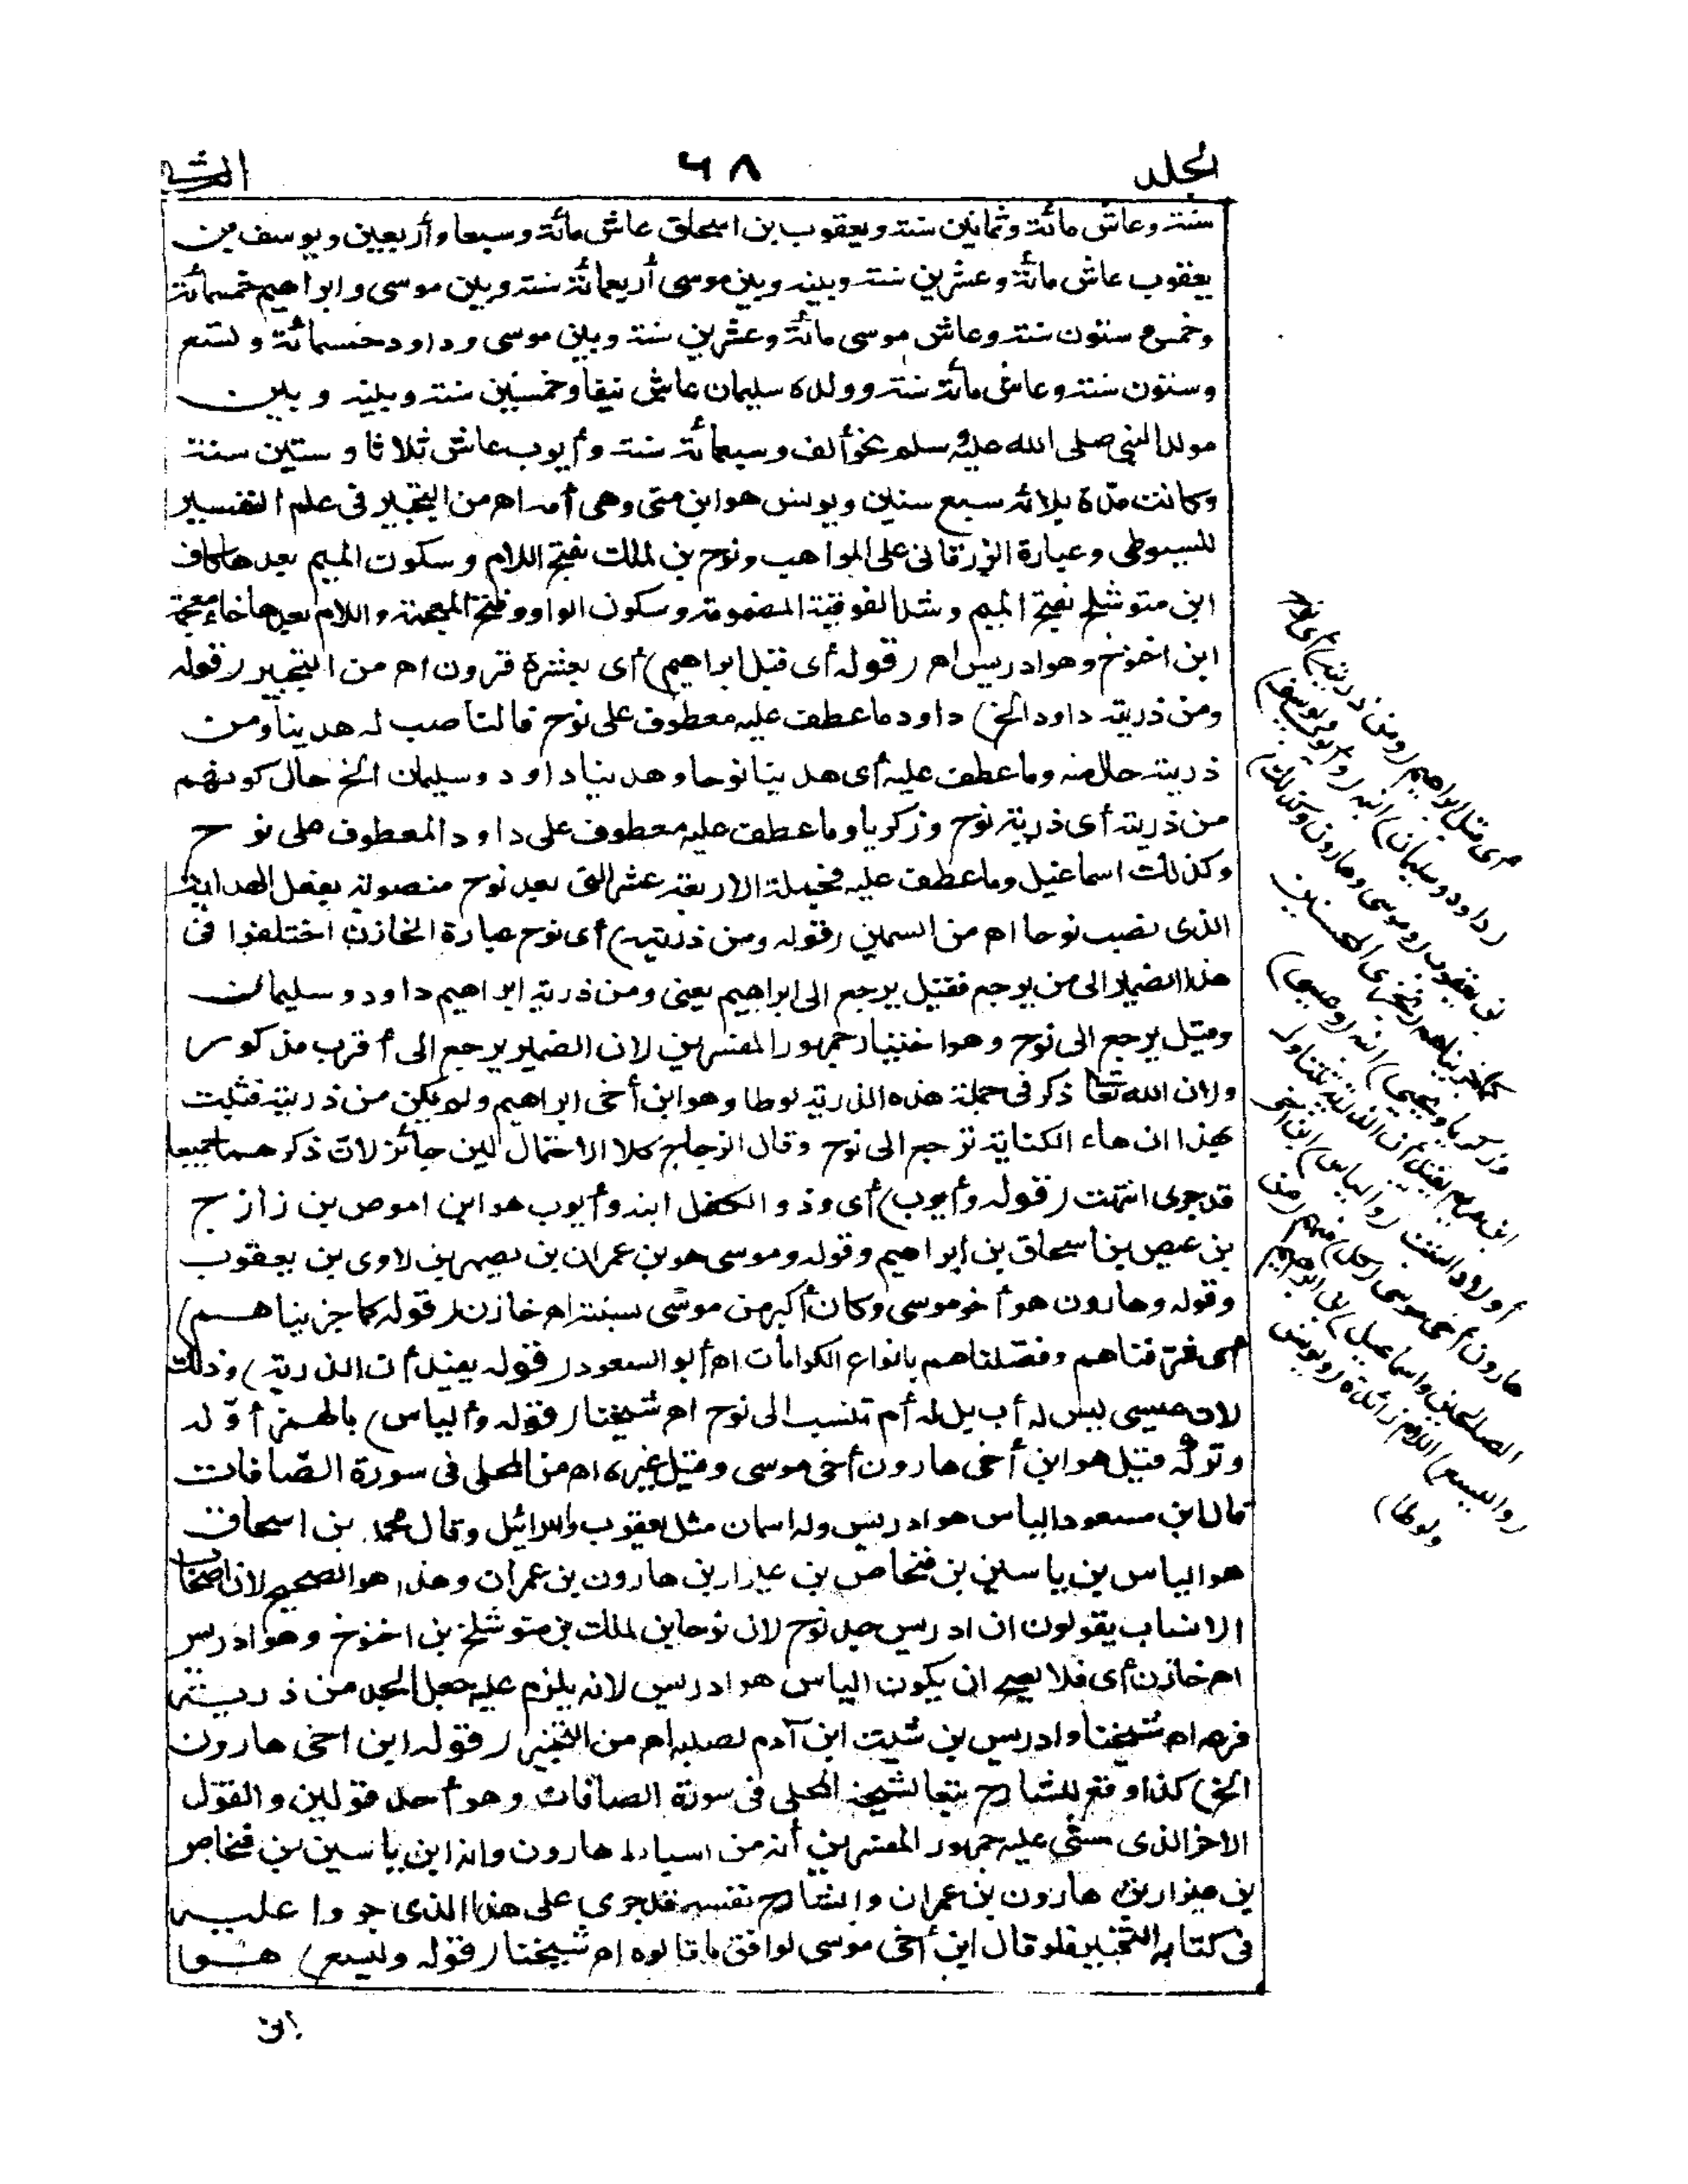 الجلد ٦٨ الث
سنة وعاش مائة وثمانين سنة ويعقوب بن اسحاق عاش مائة وسبعا وأربعين ويوسف بن
يعقوب عاش مائة وعشرين سنة وبينه وبين موسى أربعمائة سنة وبين موسى وابراهيم خمسمائة
وخمس وستون سنة وعاش موسى مائة وعشرين سنة وبين موسى وداود خمسمائة وتسع
وستون سنة وعاش مائة سنة وولده سليمان عاش نيفا وخمسين سنة وبينه وبين
مولد النبي صلى الله عليه وسلم نحو ألف وسبعمائة سنة وأيوب عاش ثلاثا وستين سنة
وكانت مدة بلائه سبع سنين ويونس هو ابن متى وهى أمه اه من التحبير فى علم التفسير
للسيوطى وعبارة الزرقانى على المواهب ونوح بن لمك بفتح اللام وسكون الميم بعدها كاف
ابن متوشلخ بفتح الميم وشد الفوقية المضمومة وسكون الواو وفتح المعجمة واللام بعدها خاء معجمة
ابن اخنوخ وهو ادريس اه (قوله أى قبل ابراهيم) أى بعشرة قرون اه من التحبير (قوله
ومن ذريته داود الخ) داود وما عطف عليه معطوف على نوح فالناصب له هدينا ومن
ذريته حال منه وما عطف عليه أى هدينا نوحا وهدينا داود وسليمان الخ حال كونهم
من ذريته أى ذرية نوح وزكريا وما عطف عليه معطوف على داود المعطوف على نوح
وكذلك اسماعيل وما عطف عليه فجملة الاربعة عشر التى بعد نوح منصوبة بفعل الهداية
الذى نصب نوحا اه من السمين (قوله ومن ذريته) أى نوح عبارة الخازن اختلفوا فى
هذا الضمير الى من يرجع فقيل يرجع الى ابراهيم يعنى ومن ذرية ابراهيم داود وسليمان
وقيل يرجع الى نوح وهو اختيار جمهور المفسرين لان الضمير يرجع الى أقرب مذكور
ولان الله تعا ذكر فى جملة هذه الذرية لوطا وهو ابن أخى ابراهيم ولم يكن من ذريته فثبت
بهذا ان هاء الكناية ترجع الى نوح وقال الزجاج كلا الاحتمالين جائز لان ذكرهما جميعا
قد جرى انتهت (قوله وأيوب) أى وذو الكفل ابنه وأيوب هو ابن اموص بن زازح
بن عيص بن اسحاق بن ابراهيم وقوله وموسى هو بن عمران بن يصهر بن لاوى بن يعقوب
وقوله وهارون هو أخو موسى وكان أكبر من موسى بسنة اه خازن (قوله كما جزيناهم)
أى شرفناهم وفضلناهم بانواع الكرامات اه أبو السعود (قوله يفيد أن الذرية) وذلك
لان عيسى ليس له أب بل له أم تنسب الى نوح اه شيخنا (قوله وألياس) بالهمز أوّله
وتركه قيل هو ابن أخى هارون أخى موسى وقيل غيره اه من المحلى فى سورة الصّافات
قال ابن مسعود الياس هو ادريس وله اسمان مثل يعقوب واسرائيل وقال محمد بن اسحاق
هو الياس بن ياسين بن فنحاص بن عيزار بن هارون بن عمران وهذا هو الصحيح لان اصحاب
الانساب يقولون ان ادريس جد نوح لان نوحا بن لمك بن متوشلخ بن اخنوخ وهو ادريس
اه خازن أى فلا يصح ان يكون الياس هو ادريس لانه يلزم عليه جعل الجد من ذرية
فرعه اه شيخنا وادريس بن شيث ابن آدم لصلبه اه من التحبير (قوله ابن اخى هارون
الخ) كذا وقع للشارح تبعا لشيخه المحلى فى سورة الصافات وهو أحد قولين والقول
الآخر الذى مشى عليه جمهور المفسرين أنه من اسباط هارون وانه ابن ياسين بن فنحاص
بن عيزار بن هارون بن عمران والشارح نفسه قد جرى على هذا الذى جروا عليه
فى كتابه التحبير فلو قال ابن أخى موسى لوافق ما قالوه اه شيخنا (قوله وليسع) هو
ابن
قبل ابراهيم (ومن ذريته) أى نوح
(داود وسليمان) ابنه (وأيوب ويوسف)
بن يعقوب (وموسى وهارون وكذلك)
كما جزيناهم (نجزى المحسنين
وزكريا ويحيى) ابنه (وعيسى)
ابن مريم يفيد أن الذرية تتناول
أولاد البنت (والياس) ابن أخى
هارون أخى موسى (كل) منهم (من
الصالحين واسماعيل) بن ابراهيم
(واليسع) اللام زائدة (ويونس
ولوطا)